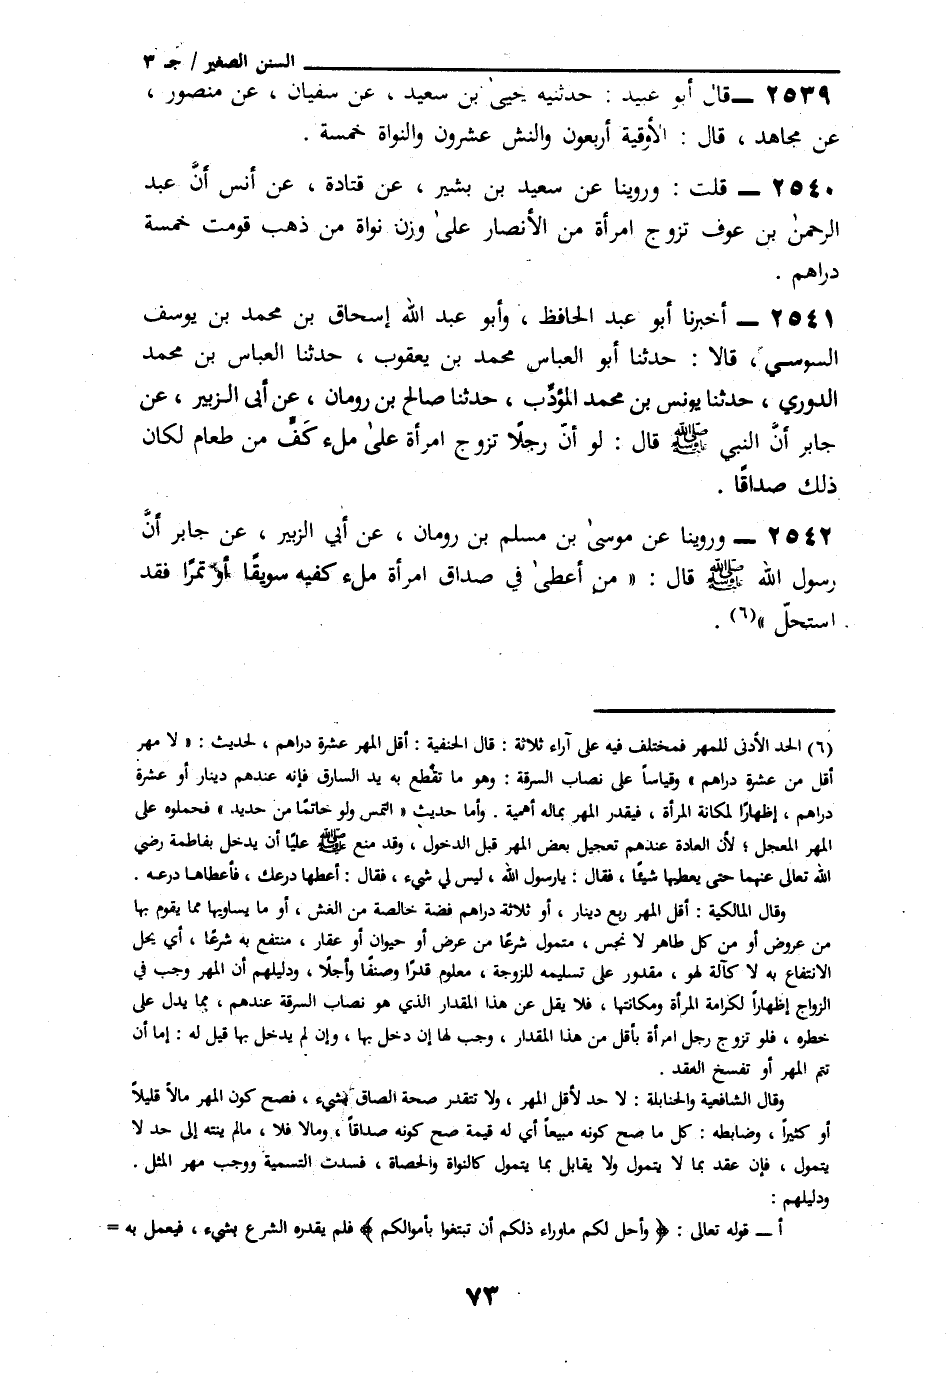 السنن الصغير / جـ ٣
٢٥٣٩ ــ قال أبو عبيد : حدثنيه يحيىٰ بن سعيد ، عن سفيان ، عن منصور ،
عن مجاهد ، قال : الأوقية أربعون والنش عشرون والنواة خمسة .
٢٥٤٠ ــ قلت : وروينا عن سعيد بن بشير ، عن قتادة ، عن أنس أنَّ عبد
الرحمنٰ بن عوف تزوج امرأة من الأنصار علىٰ وزن نواة من ذهب قومت خمسة
دراهم .
٢٥٤١ ــ أخبرنا أبو عبد الحافظ ، وأبو عبد الله إسحاق بن محمد بن يوسف
السوسي ، قالا : حدثنا أبو العباس محمد بن يعقوب ، حدثنا العباس بن محمد
الدوري ، حدثنا يونس بن محمد المؤدِّب ، حدثنا صالح بن رومان ، عن أبى الزبير ، عن
جابر أنَّ النبي ﷺ قال : لو أنّ رجلًا تزوج امرأة علىٰ ملء كَفٍّ من طعام لكان
ذلك صداقًا .
٢٥٤٢ ــ وروينا عن موسىٰ بن مسلم بن رومان ، عن أبي الزبير ، عن جابر أنَّ
رسول الله ﷺ قال : « من أعطىٰ في صداق امرأة ملء كفيه سويقًا أو تمرًا فقد
استحلّ »(٦) .
(٦) الحد الأدنى للمهر فمختلف فيه على آراء ثلاثة : قال الحنفية : أقل المهر عشرة دراهم ، لحديث : « لا مهر
أقل من عشرة دراهم » وقياساً على نصاب السرقة : وهو ما تقطع به يد السارق فإنه عندهم دينار أو عشرة
دراهم ، إظهارًا لمكانة المرأة ، فيقدر المهر بماله أهمية . وأما حديث « التمس ولو خاتمًا من حديد » فحملوه على
المهر المعجل ؛ لأن العادة عندهم تعجيل بعض المهر قبل الدخول ، وقد منع ﷺ عليًا أن يدخل بفاطمة رضي
الله تعالى عنهما حتى يعطيها شيئًا ، فقال : يارسول الله ، ليس لي شيء ، فقال : أعطها درعك ، فأعطاها درعه .
وقال المالكية : أقل المهر ربع دينار ، أو ثلاثة دراهم فضة خالصة من الغش ، أو ما يساويها مما يقوم بها
من عروض أو من كل طاهر لا نجس ، متمول شرعًا من عرض أو حيوان أو عقار ، منتفع به شرعًا ، أي يحل
الانتفاع به لا كآلة لهو ، مقدور على تسليمه للزوجة ، معلوم قدرًا وصنفًا وأجلًا ، ودليلهم أن المهر وجب في
الزواج إظهاراً لكرامة المرأة ومكانتها ، فلا يقل عن هذا المقدار الذي هو نصاب السرقة عندهم ، مما يدل على
خطره ، فلو تزوج رجل امرأة بأقل من هذا المقدار ، وجب لها إن دخل بها ، وإن لم يدخل بها قيل له : إما أن
تتم المهر أو تفسخ العقد .
وقال الشافعية والحنابلة : لا حد لأقل المهر ، ولا تتقدر صحة الصاق بشيء ، فصح كون المهر مالاً قليلاً
أو كثيراً ، وضابطه : كل ما صح كونه مبيعاً أي له قيمة صح كونه صداقاً ، ومالا فلا ، مالم ينته إلى حد لا
يتمول ، فإن عقد بما لا يتمول ولا يقابل بما يتمول كالنواة والحصاة ، فسدت التسمية ووجب مهر المثل .
ودليلهم :
أ ــ قوله تعالى : ﴿ وأحل لكم ماوراء ذلكم أن تبتغوا بأموالكم ﴾ فلم يقدره الشرع بشيء ، فيعمل به =
٧٣